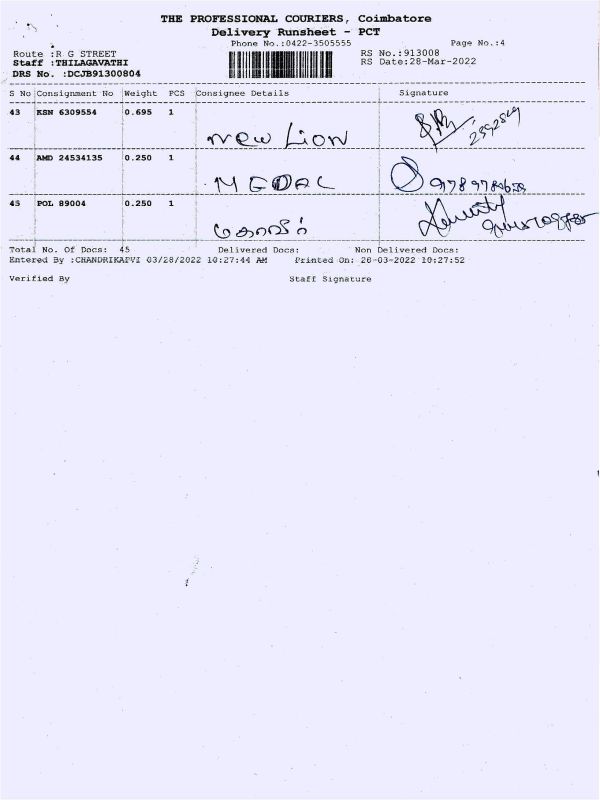 THE PROFESSIONAL COURIERS, Coimbatore
Delivery Runsheet - PCT
Phone No.:0422-3505555 Page No.:4
Route :R G STREET RS No.:913008
Staff :THILAGAVATHI RS Date:28-Mar-2022
DRS No. :DCJB91300804
S No Consignment No Weight PCS Consignee Details Signature
43 KSN 6309554 0.695 1
New Lion
44 AMD 24534135 0.250 1
45 POL 89004 0.250 1
Total No. Of Docs: 45 Delivered Docs: Non Delivered Docs:
Entered By :CHANDRIKAPVI 03/28/2022 10:27:44 AM Printed On: 28-03-2022 10:27:52
Verified By Staff Signature